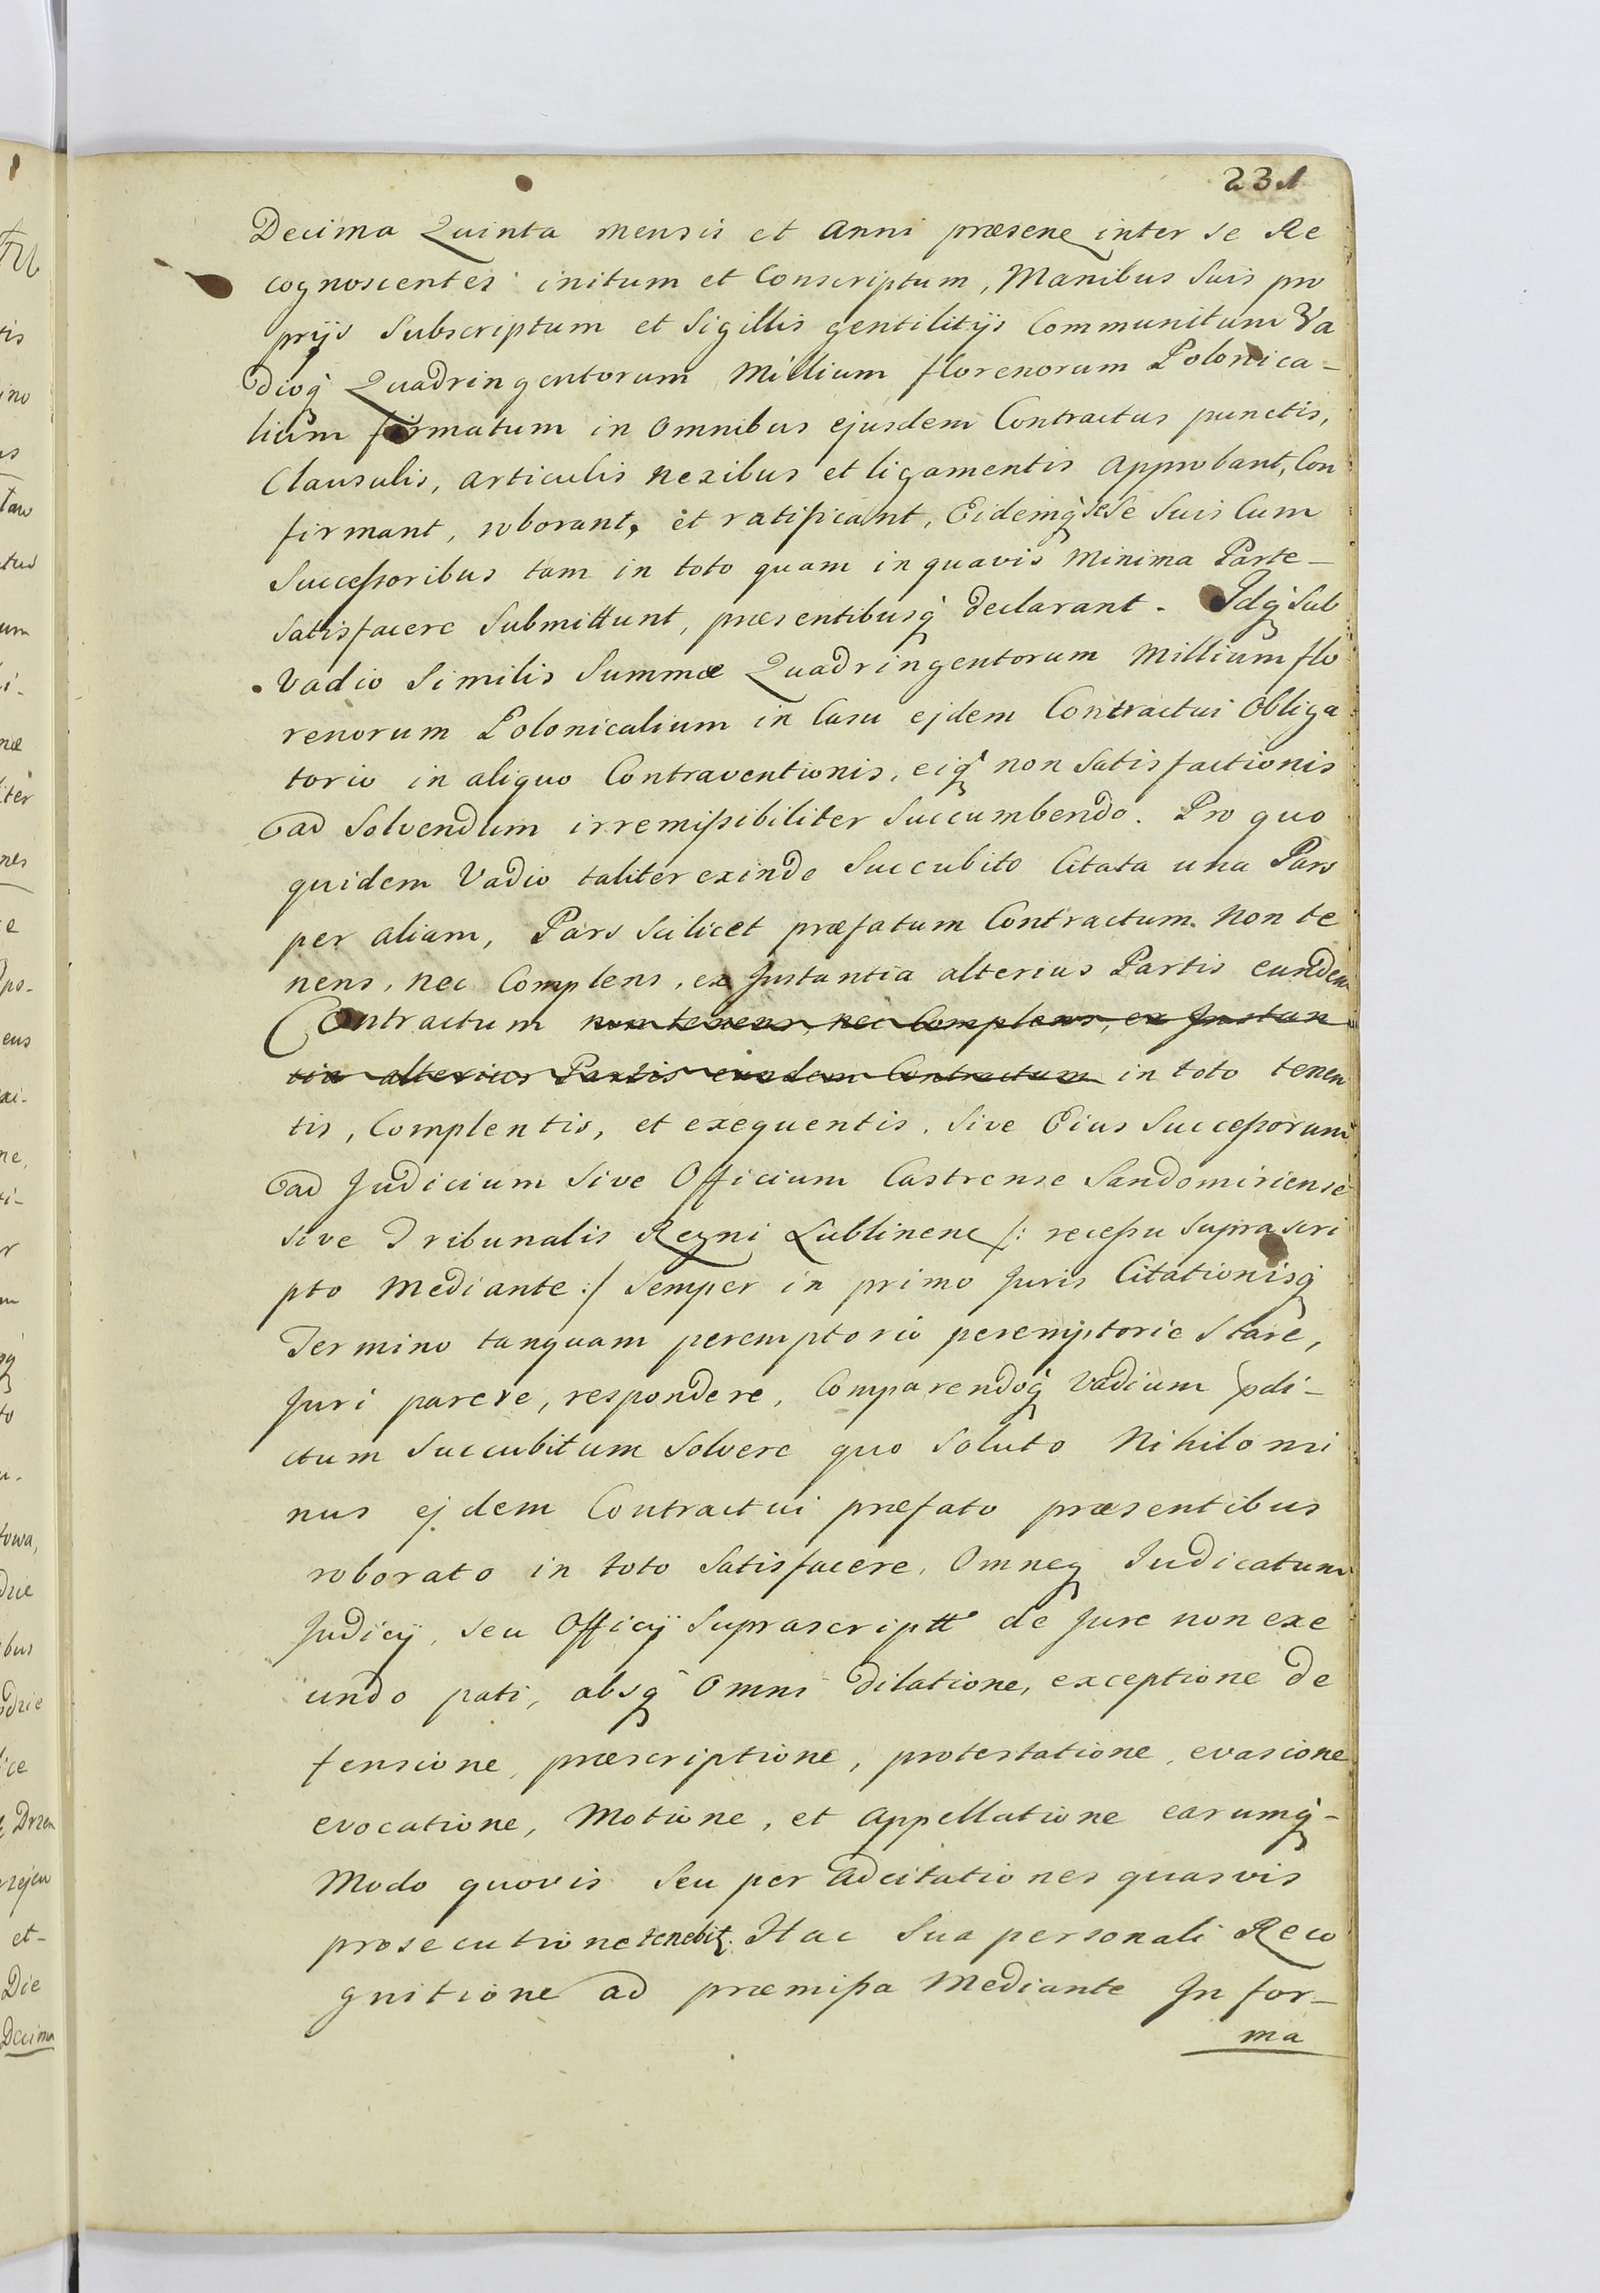 231
Decima Quinta mensis et Anni præsenꝫ inter se Re
cognoscentes initum et Conscriptum, Manibus Suis pro
prijs Subscriptum et Sigillis gentilitijs Communitum Va
dioq̀ Quadringentorum Millium florenorum Polonica-
lium firmatum in Omnibus ejusdem Contractus punctis,
Clausulis, articulis nexibus et ligamentis Approbant, Con
firmant, roborant, et ratificant, Eidemq̀ sese Suis Cum
Successoribus tam in toto quam in quavis Minima Parte-
Satisfacere Submittunt, præsentibusq̀ declarant. Idq̀ Sub
Vadio Similis Summæ Quadringentorum Millium flo
renorum Polonicalium in Casu ejdem Contractui Obliga
torio in aliquo Contraventionis, eiq̀ non Satisfactionis
ad Solvendum irremissibiliter Succumbendo. Pro quo
quidem Vadio taliter exinde Succubito Citata una Pars
per aliam, Pars Scilicet præfatum Contractum non te
nens, nec Complens, ex Instantia alterius Partis eundem
Contractum non tenens, nec Complens, ex Instan
tia alterius Partis eundem Contractum in toto tenen
tis, Complentis, et exequentis, Sive Eius Successorum
ad Judicium Sive Officium Castrense Sandomiriense
Sive Tribunalis Regni Lublinenꝫ /: recessu Suprascri
pto Mediante :/ Semper in primo Juris Citationisq̀
Termino tanquam peremptorio peremptorie Stare,
Juri parere, respondere, Comparendoq̀ Vadium pdi-
ctum Succubitum Solvere quo Soluto Nihilomi
nus ejdem Contractui præfato præsentibus
roborato in toto Satisfacere, Omneꝫ Judicatum
Judicij, seu Officij Suprascriptt de Jure non exe
undo pati, absq̀ Omni dilatione, exceptione de
fensione, præscriptione, protestatione, evasione
evocatione, Motione, et Appellatione earumq̀-
Modo quovis Seu per Adcitationes quasvis
prosecutione tenebitꝫ. Hac Sua personali Reco
gnitione ad præmissa Mediante In for-
ma